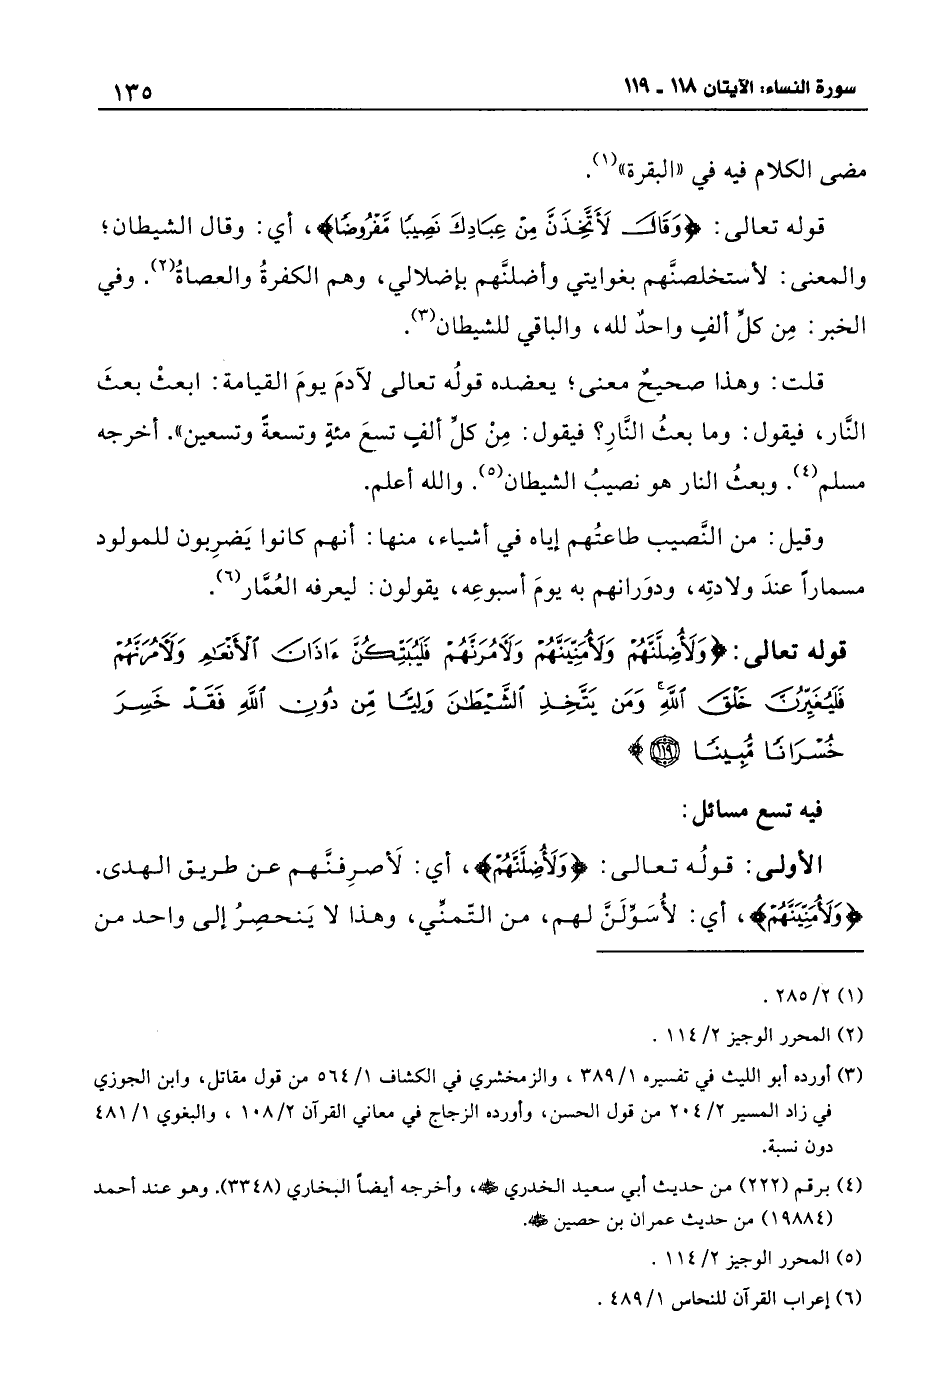 سورة النساء: الآيتان ١١٨ - ١١٩
١٣٥
مضى الكلام فيه في «البقرة»(١).
قوله تعالى: ﴿وَقَالَ لَأَتَّخِذَنَّ مِنْ عِبَادِكَ نَصِيبًا مَّفْرُوضًا﴾، أي: وقال الشيطان؛
والمعنى: لأستخلصنَّهم بغوايتي وأضلنَّهم بإضلالي، وهم الكفرةُ والعصاةُ(٢). وفي
الخبر: مِن كلِّ ألفٍ واحدٌ لله، والباقي للشيطان(٣).
قلت: وهذا صحيحٌ معنى؛ يعضده قولُه تعالى لآدمَ يومَ القيامة: ابعثْ بعثَ
النَّار، فيقول: وما بعثُ النَّارِ؟ فيقول: مِنْ كلِّ ألفٍ تسعَ مئةٍ وتسعةً وتسعين». أخرجه
مسلم(٤). وبعثُ النار هو نصيبُ الشيطان(٥). والله أعلم.
وقيل: من النَّصيب طاعتُهم إياه في أشياء، منها: أنهم كانوا يَضرِبون للمولود
مسماراً عندَ ولادتِه، ودوَرانهم به يومَ أسبوعِه، يقولون: ليعرفه العُمَّار(٦).
قوله تعالى: ﴿وَلَأُضِلَّنَّهُمْ وَلَأُمَنِّيَنَّهُمْ وَلَآمُرَنَّهُمْ فَلَيُبَتِّكُنَّ ءَاذَانَ ٱلْأَنْعَٰمِ وَلَآمُرَنَّهُمْ
فَلَيُغَيِّرُنَّ خَلْقَ ٱللَّهِ ۚ وَمَن يَتَّخِذِ ٱلشَّيْطَٰنَ وَلِيًّا مِّن دُونِ ٱللَّهِ فَقَدْ خَسِرَ
خُسْرَانًا مُّبِينًا ۝١١٩﴾
فيه تسع مسائل:
الأولى: قولُه تعالى: ﴿وَلَأُضِلَّنَّهُمْ﴾، أي: لَأصرِفنَّهم عن طريق الهدى.
﴿وَلَأُمَنِّيَنَّهُمْ﴾، أي: لأُسَوِّلَنَّ لهم، من التّمنِّي، وهذا لا يَنحصِرُ إلى واحد من
(١) ٢/ ٢٨٥ .
(٢) المحرر الوجيز ٢/ ١١٤ .
(٣) أورده أبو الليث في تفسيره ١/ ٣٨٩ ، والزمخشري في الكشاف ١/ ٥٦٤ من قول مقاتل، وابن الجوزي
في زاد المسير ٢/ ٢٠٤ من قول الحسن، وأورده الزجاج في معاني القرآن ٢/ ١٠٨ ، والبغوي ١/ ٤٨١
دون نسبة.
(٤) برقم (٢٢٢) من حديث أبي سعيد الخدري ﷺ، وأخرجه أيضاً البخاري (٣٣٤٨). وهو عند أحمد
(١٩٨٨٤) من حديث عمران بن حصين ﷺ.
(٥) المحرر الوجيز ٢/ ١١٤ .
(٦) إعراب القرآن للنحاس ١/ ٤٨٩ .